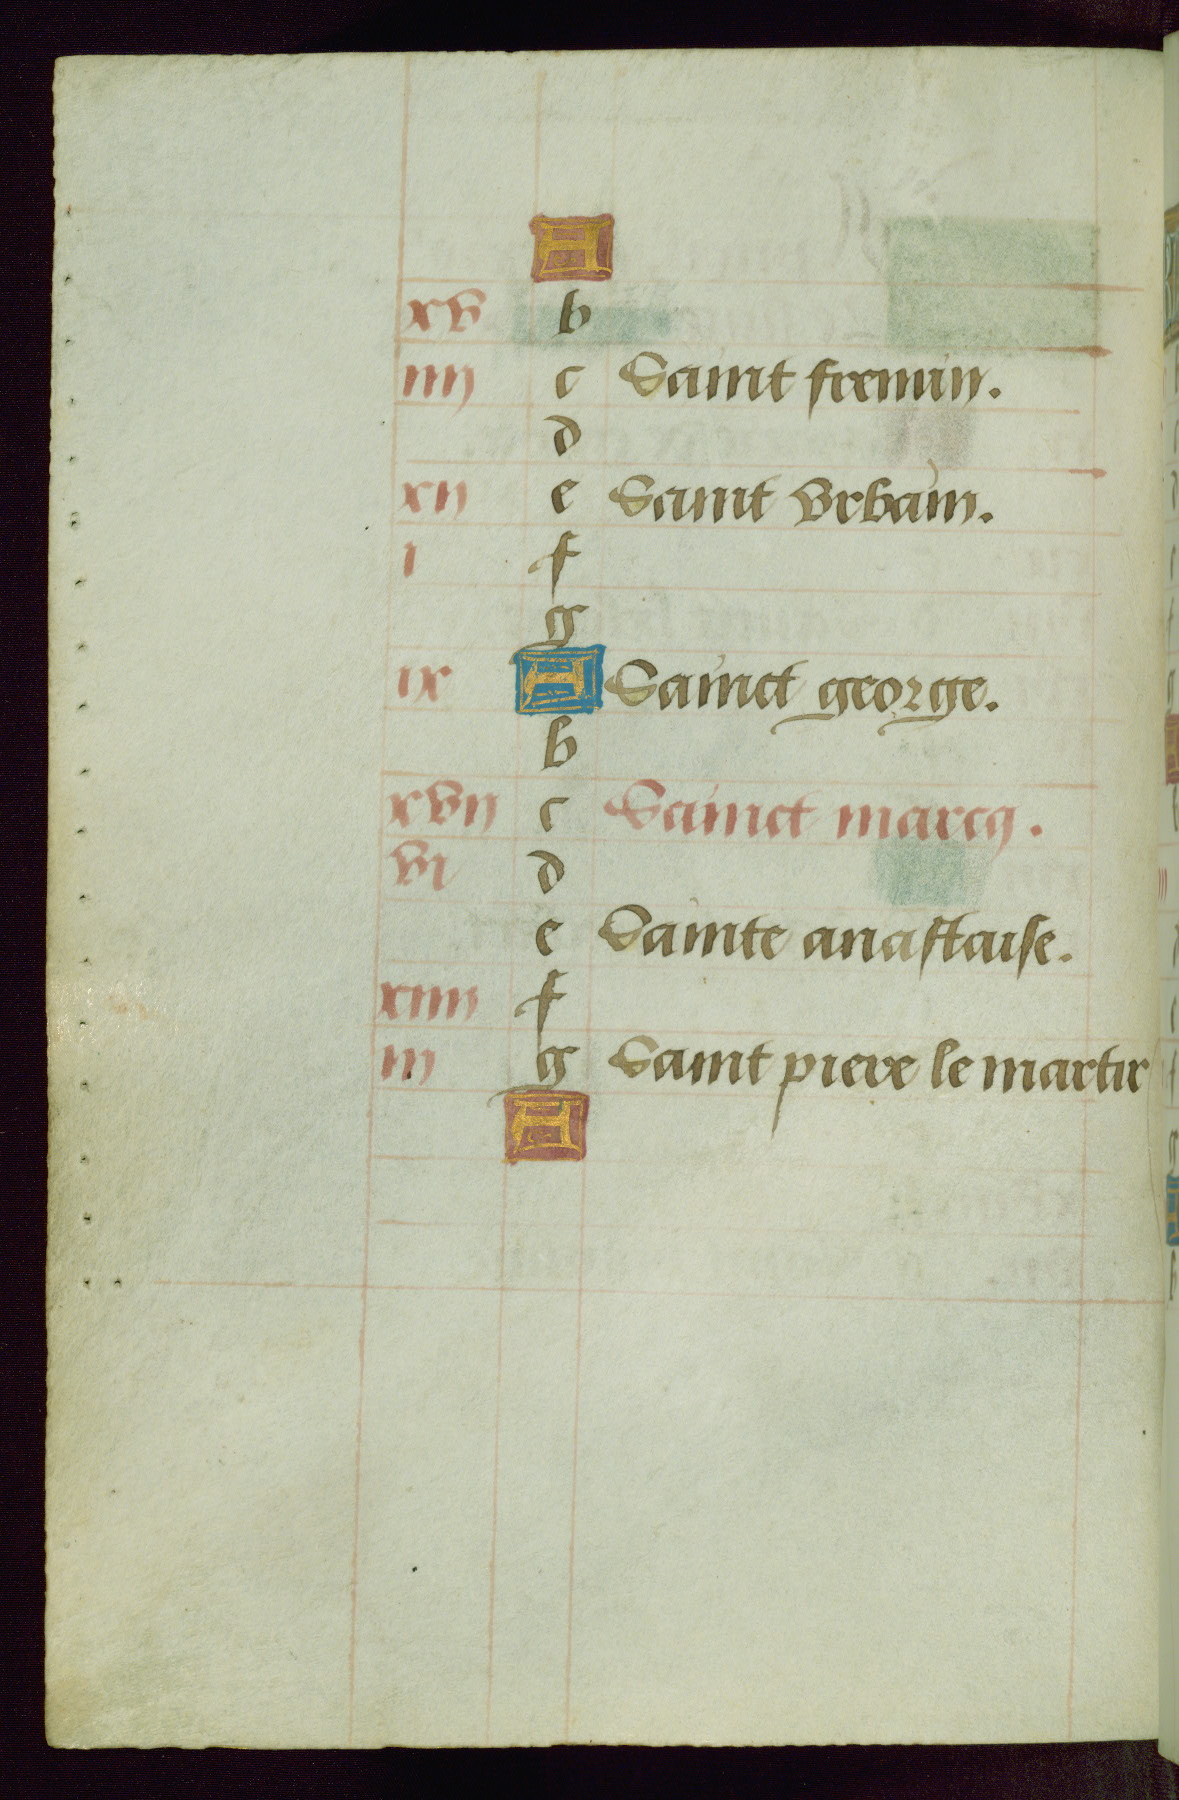 A
xv b
iiij c Saint fremin.
d
xii e Saint Vrbain.
i f
g
ix A Sainct george.
b
xvii c Sainct marcq.
vi d
e Sainte anastaise.
xiiii f
iii g Saint piere le martir
A